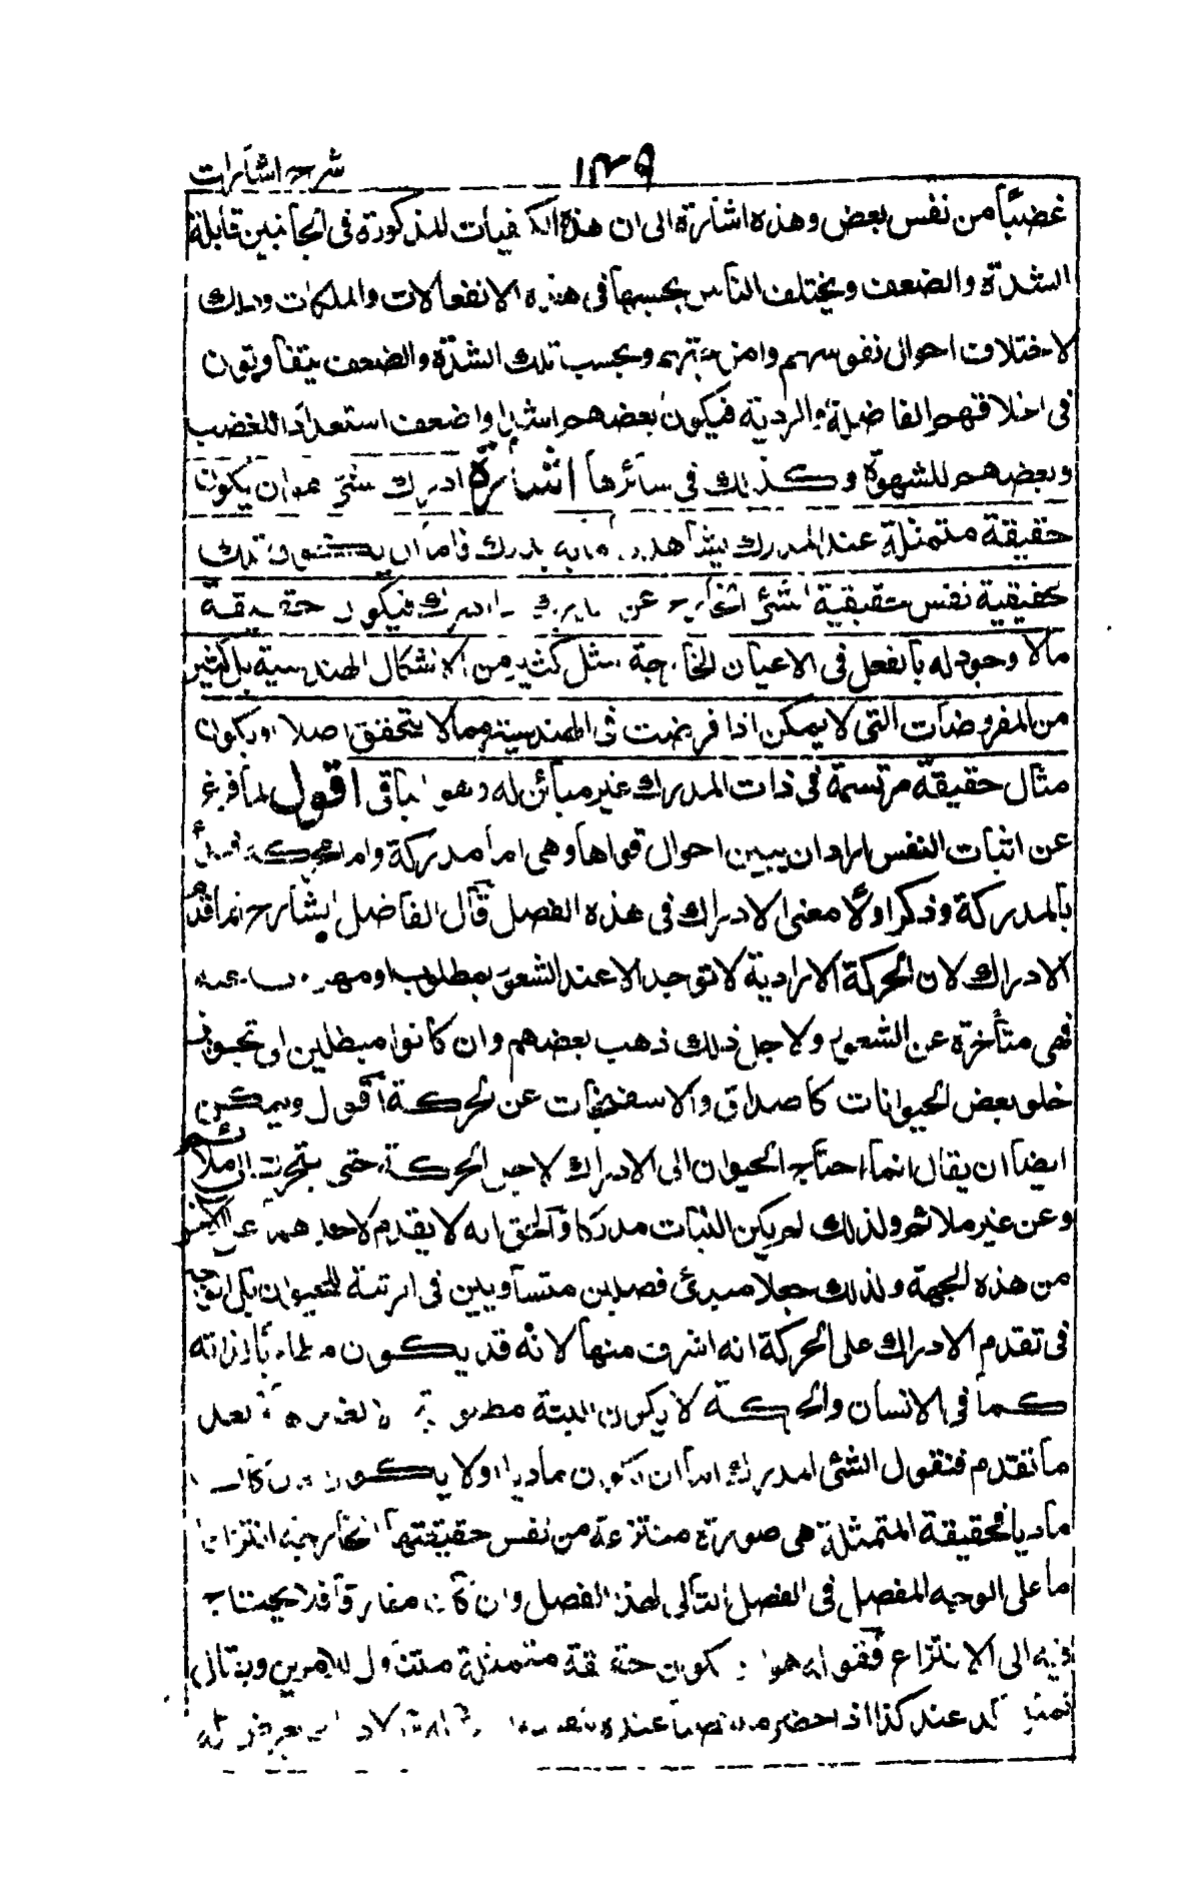 شرح اشارات ١٣٩
غضبًا من نفس بعض وهذه اشارة الى ان هذه الكيفيات المذكورة فى الجانبين قابلة
الشدّة والضعف ويختلف الناس بحسبها فى هذه الانفعالات والملكات وذلك
لاختلاف احوال نفوسهم وامزجتهم وبحسب تلك الشدّة والضعف يتفاوتون
فى اخلاقهم الفاضلة والردية فيكون بعضهم اشدّ او اضعف استعدادًا للغضب
وبعضهم للشهوة وكذلك فى سائرها اشارة ادراك شئ هو ان يكون
حقيقة متمثلة عند المدرك يشاهدها ما به يدرك فاما ان يكون تلك
الحقيقية نفس حقيقية الشئ الخارج عن المدرك اذا ادرك فيكون حقيقة
مالا وجود له بالفعل فى الاعيان الخارجة مثل كثير من الاشكال الهندسية بل كثير
من المفروضات التى لا يمكن اذا فرضت فى الهندسية مما لا يتحقق اصلا او يكون
مثال حقيقة مرتسمة فى ذات المدرك غير مبائن له وهو الباقى اقول لما فرغ
عن اثبات النفس اراد ان يبين احوال قواها وهى اما مدركة واما محركة فبدأ
بالمدركة وذكر اولًا معنى الادراك فى هذه الفصل قال الفاضل الشارح انما قدّم
الادراك لان الحركة الارادية لا توجد الا عند الشعور بمطلوب او مهروب عنه
فهى متأخرة عن الشعور ولاجل ذلك ذهب بعضهم وان كانوا مبطلين الى تجويز
خلو بعض الحيوانات كالاصداف والاسفنجات عن الحركة اقول ويمكن
ايضا ان يقال انما احتاج الحيوان الى الادراك لاجل الحركة حتى يتحرك الى ملائم
وعن غير ملائم ولذلك لم يكن النبات مدركا والحق انه لا يقدم لاحدهما عن الآخر
من هذه الجهة ولذلك جعلا مبدئ فصلين متساويين فى الرتبة للحيوان بل الوجه
فى تقدم الادراك على الحركة انه اشرف منها لانه قد يكون مطلوبًا لذاته
كما فى الانسان والحركة لا يكون البتة مطلوبة لغيرها
ما تقدم فنقول الشئ المدرك اما ان يكون ماديا اولا يكون فان كان
ماديا فحقيقة المتمثلة هى صورة منتزعة من نفس حقيقتها الخارجية انتزاعا
ما على الوجه المفصل فى الفصل التالى لهذا الفصل وان كان مفارقا فلا يحتاج
فيه الى الانتزاع فقوله هو ان يكون حقيقة متمثلة متناول للامرين ويقال
تمثل كذا عند كذا اذا حضر منتصبا عنده بنفسه